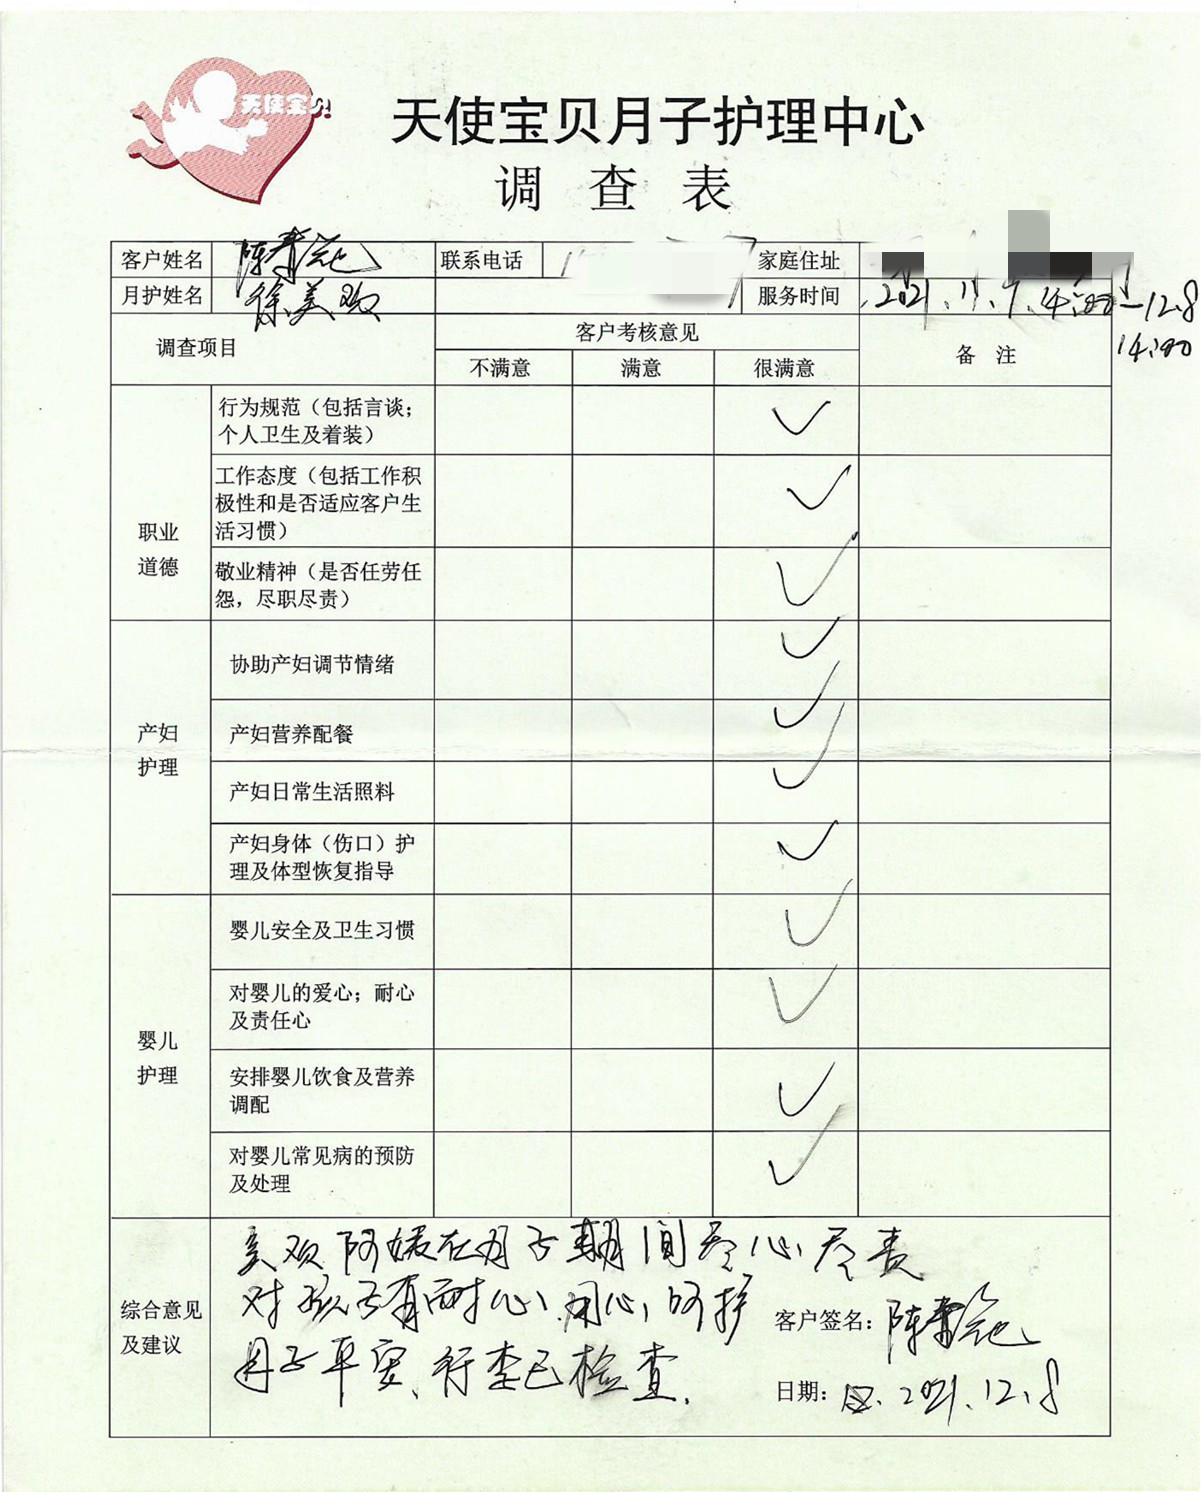 天使宝贝
天使宝贝月子护理中心
调 查 表
客户姓名 陈 联系电话 家庭住址
月护姓名 徐美欢 服务时间 2021.11.7. 14:00-12.8
14:00
调查项目 客户考核意见 备 注
不满意 满意 很满意
职业
道德
行为规范（包括言谈；
个人卫生及着装）
工作态度（包括工作积
极性和是否适应客户生
活习惯）
敬业精神（是否任劳任
怨，尽职尽责）
产妇
护理
协助产妇调节情绪
产妇营养配餐
产妇日常生活照料
产妇身体（伤口）护
理及体型恢复指导
婴儿
护理
婴儿安全及卫生习惯
对婴儿的爱心；耐心
及责任心
安排婴儿饮食及营养
调配
对婴儿常见病的预防
及处理
综合意见
及建议
美欢阿姨在月子期间尽心尽责
对孩子有耐心、用心、呵护
月子平安、行李已检查.
客户签名： 陈
日期： 2021.12.8